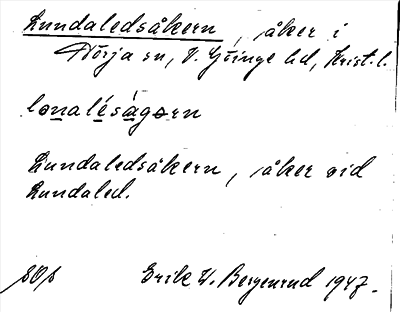 Lundaledsåkern, åker i
Norja sn, V. Göinge hd, Krist. l.
lonaléságorn
Lundaledsåkern, åker vid
Lundaled.
Erik W. Bergenrud 1947.